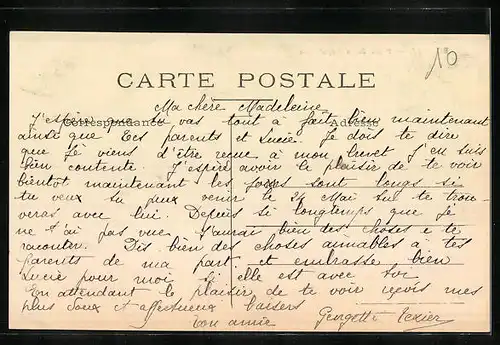 10
CARTE POSTALE
Ma chère Madeleine
Correspondance
Adresse
J'espère que tu vas tout à fait bien maintenant
ainsi que tes parents et Lucie. Je dois te dire
que je viens d'être reçue à mon brevet J'en suis
bien contente. J'espère avoir le plaisir de te voir
bientôt maintenant les jours sont longs si
tu veux tu peux venir le 24 Mai tu te trou-
veras avec lui. Depuis si longtemps que je
ne t'ai pas vue J'aurai bien des choses a te
raconter. Dis bien des choses aimables à tes
parents de ma part et embrasse bien
Lucie pour moi si elle est avec toi
En attendant le plaisir de te voir reçois mes
plus doux et affectueux baisers
Ton amie Georgette Texier